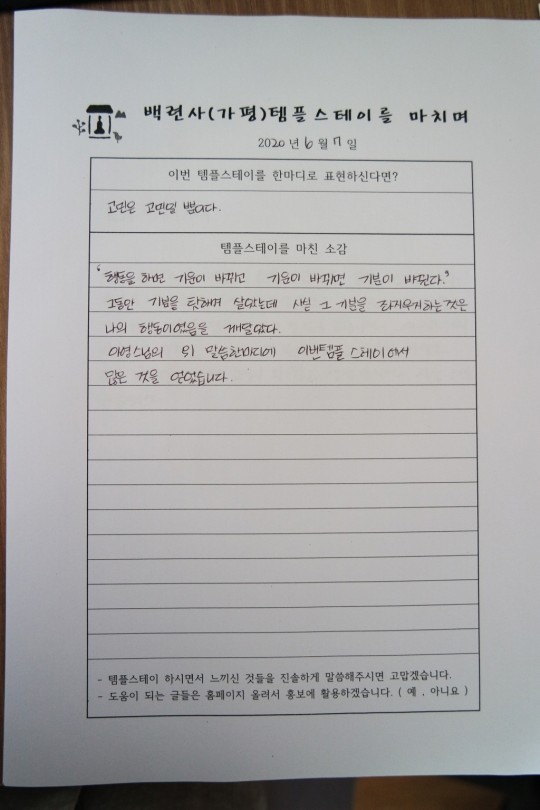 백련사(가평)템플스테이를 마치며
2020 년 6 월 7 일
이번 템플스테이를 한마디로 표현하신다면?
고민은 고민일 뿐이다.
템플스테이를 마친 소감
"행동을 하면 기운이 바뀌고 기운이 바뀌면 기분이 바뀐다."
그동안 기분을 탓해며 살았는데 사실 그 기분을 좌지우지하는것은
나의 행동이었음을 깨달았다.
스님의 위 말씀한마디에 이번템플 스테이에서
많은 것을 얻었습니다.
- 템플스테이 하시면서 느끼신 것들을 진솔하게 말씀해주시면 고맙겠습니다.
- 도움이 되는 글들은 홈페이지 올려서 홍보에 활용하겠습니다. ( 예 , 아니요 )